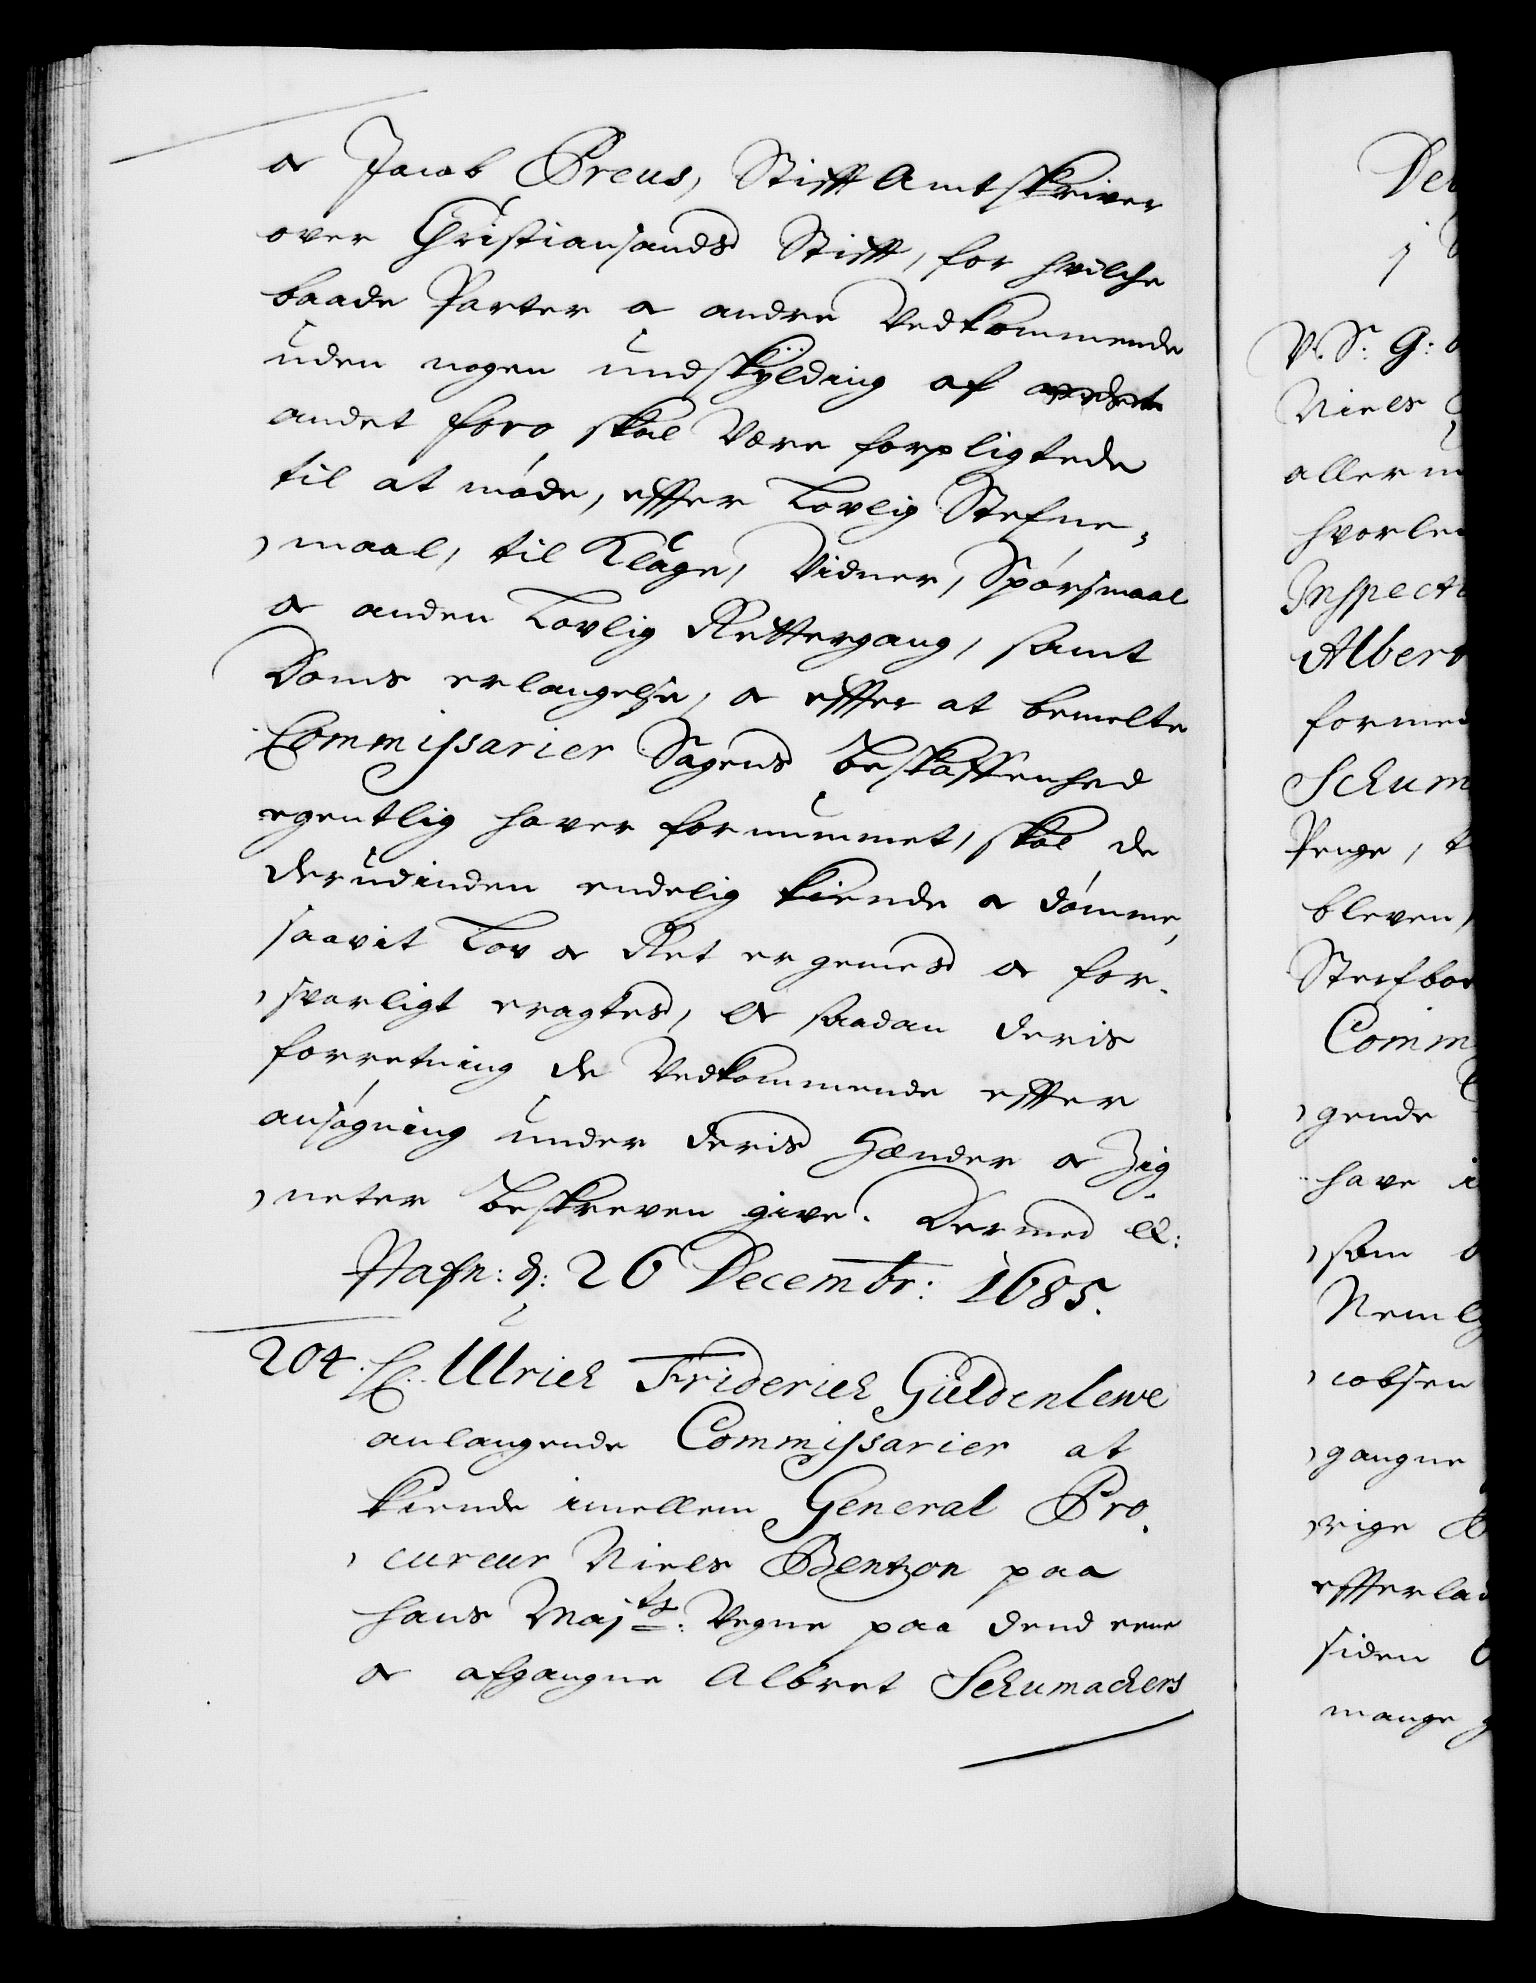 oc Jacob Preus, Stifft Amtskriver
over Christiansands Stifft, for hvilche
baade Parter oc andre Vedkommende
uden nogen undskÿlding af
andet foro skal være forpligtede
til at møde, effter Lovlig Stefne-
maal, til Klage, Vidner, Spørsmaal
oc anden Lovlig Rettergang, samt
Doms erlangelse, oc effter at bemelte
Commissarier Sagens beskaffenhed
egentlig haver fornummet, skal de
derudinden endelig kiende oc dømme,
saavit Lov oc Ret er gemes oc for-
svarligt eragtes, Oc saadan deris
forretning de Vedkommende effter
ansøgning under deris Hænder oc Zig-
neter beskreven give. Dermed &:
Hafn: d: 26 Decembr: 1685.
204. Ulrich Friderich Güldenlewe
anlangende Commissarier at
kiende imellem General Pro-
cureur Niels Bentzon paa
hans Majts: Vegne paa dend eene
oc afgangne Albret Schumachers
Des
j
V. S. G:
Niels
allerun
hvorled
Inspect
Albert
formed
Schum
Penge,
bleven,
Sterfboe
Comm
gende
have i
som
Neml
cobsen
gangne
rige
effterlad
siden
mange